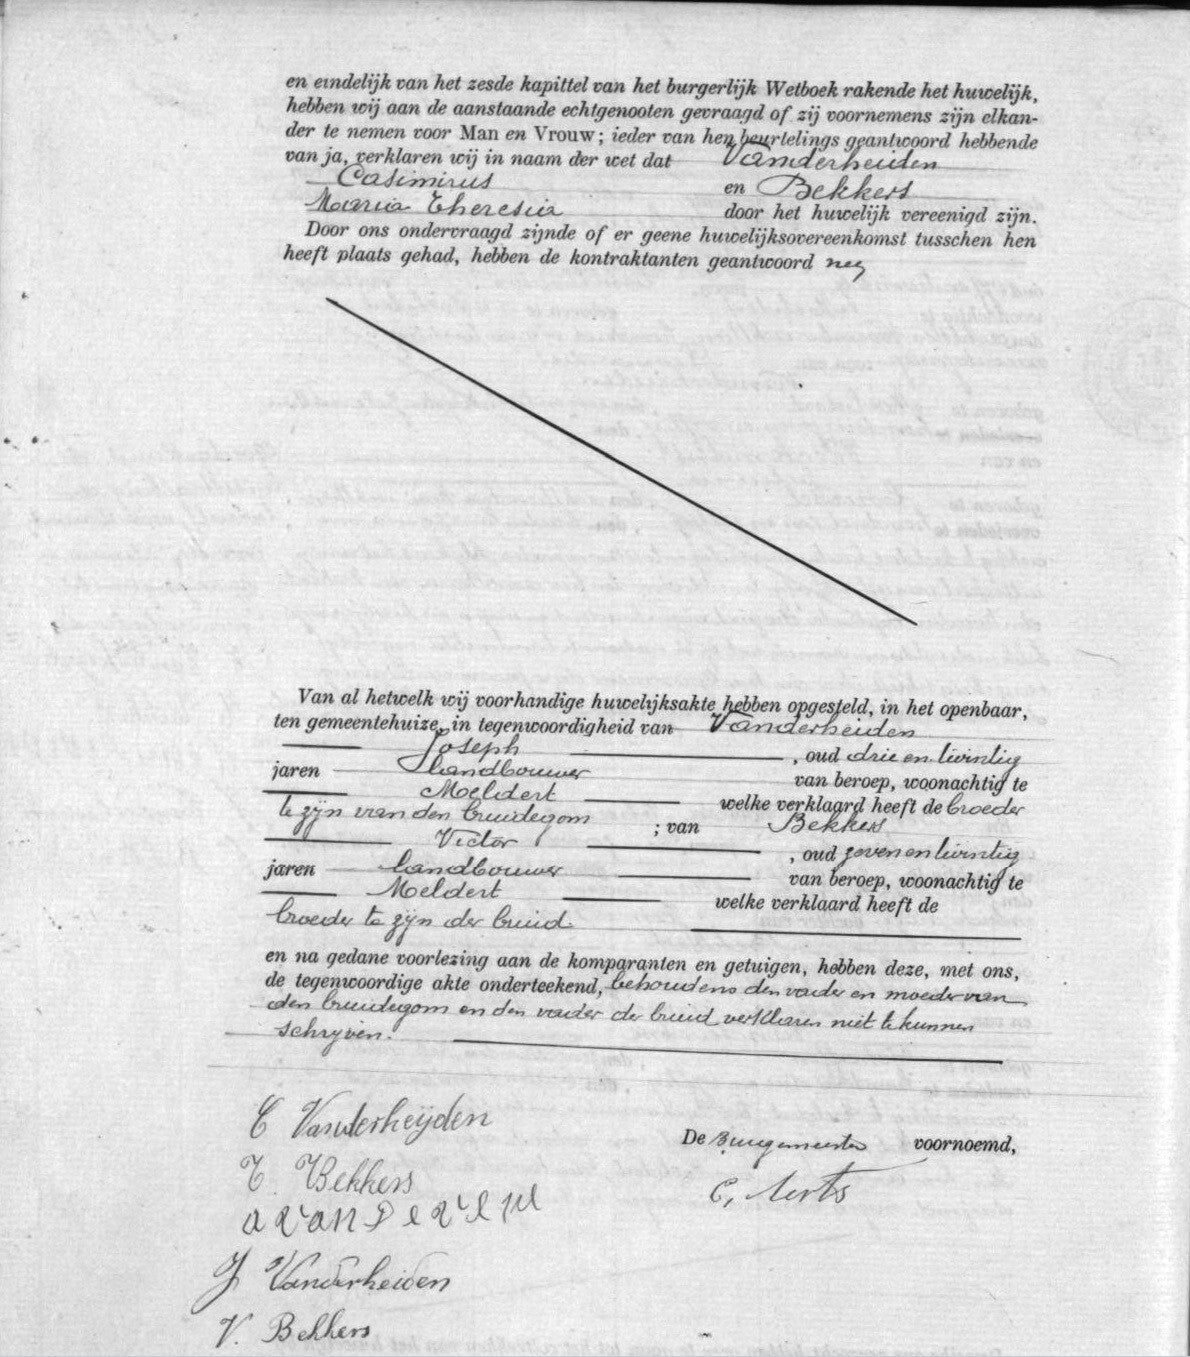 en eindelijk van het zesde kapittel van het burgerlijk Wetboek rakende het huwelijk,
hebben wij aan de aanstaande echtgenooten gevraagd of zij voornemens zijn elkan-
der te nemen voor Man en Vrouw; ieder van hen beurtelings geantwoord hebbende
van ja, verklaren wij in naam der wet dat Vanderheiden
Casimirus en Bekkers
Maria Theresia door het huwelijk vereenigd zijn.
Door ons ondervraagd zijnde of er geene huwelijksovereenkomst tusschen hen
heeft plaats gehad, hebben de kontraktanten geantwoord
Van al hetwelk wij voorhandige huwelijksakte hebben opgesteld, in het openbaar,
ten gemeentehuize, in tegenwoordigheid van Vanderheiden
Joseph , oud drie en twintig
jaren landbouwer van beroep, woonachtig te
Meldert welke verklaard heeft de broeder
te zijn van den bruidegom ; van Bekkers
Victor , oud zeven en twintig
jaren landbouwer van beroep, woonachtig te
Meldert welke verklaard heeft de
broeder te zijn der bruid
en na gedane voorlezing aan de komparanten en getuigen, hebben deze, met ons,
de tegenwoordige akte onderteekend, behoudens den vader en moeder van
den bruidegom en den vader der bruid verklaren niet te kunnen
schrijven.
C Vanderheijden
De Burgemeester voornoemd,
T. Bekkers
C. Aerts
J Vanderheiden
V. Bekkers